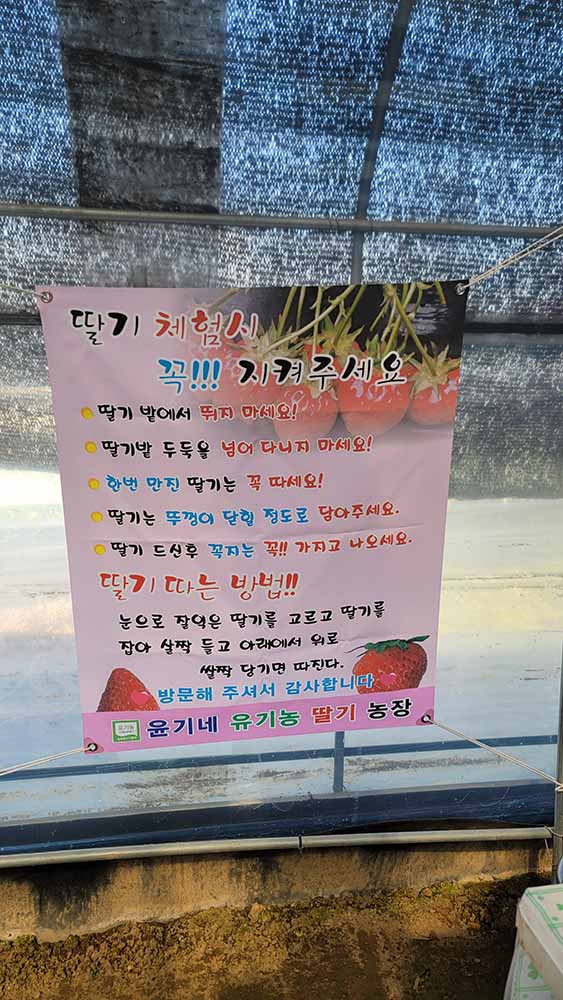 딸기 체험시
꼭!!! 지켜주세요
딸기 밭에서 뛰지 마세요!
딸기밭 두둑을 넘어 다니지 마세요!
한번 만진 딸기는 꼭 따세요!
딸기는 뚜껑이 닫힐 정도로 담아주세요.
딸기 드신후 꼭지는 꼭!! 가지고 나오세요.
딸기 따는 방법!!
눈으로 잘익은 딸기를 고르고 딸기를
잡아 살짝 들고 아래에서 위로
살짝 당기면 따진다.
방문해 주셔서 감사합니다
유기농
윤기네 유기농 딸기 농장